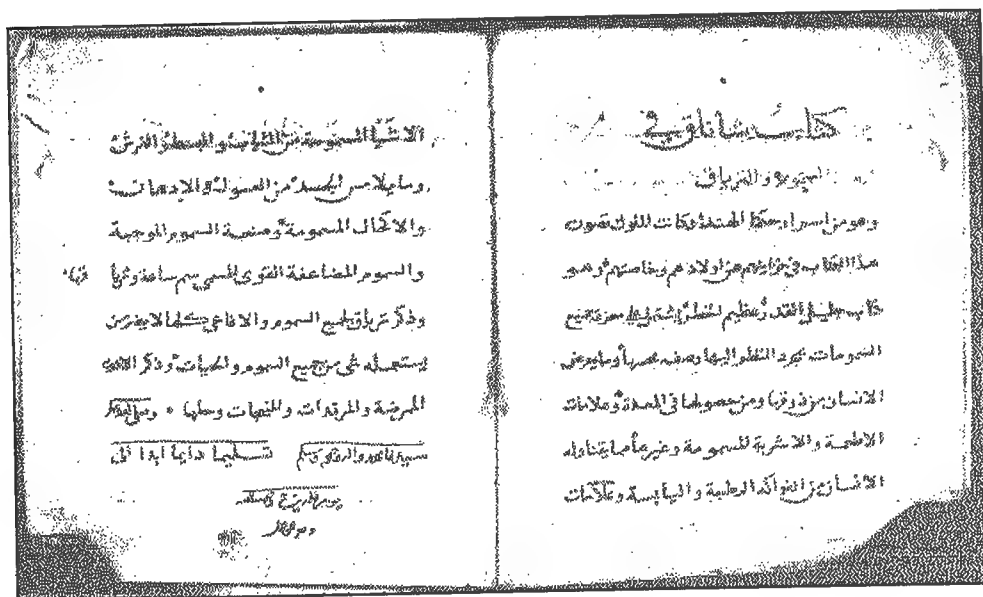 كتاب شاناق في
السموم والترياق
وهو من اسرار حكما الهند وكانت الملوك تصون
هذا الكتاب في خزاينهم عن اولادهم وخاصتهم وهو
كتاب جليل القدر عظيم الخطر يشتمل معرفة جميع
السمومات بمجرد النظر اليها وصف وما يعرض
للانسان من ذوقها ومن حصولها في المعدة وعلامات
الاطعمة والاشربة المسمومة وغيرها مما يتناوله
الانسان من الفواكه الرطبة واليابسة وعلامات
الاشيا المسمومة من الثياب والبسط والفرش
وما يلامس الجسد من الغسولات والادهانات
والاكحال المسمومة وصنعة السموم الموجبة
والسموم المضاعفة القوى المسمى سم ساعة
وذكر ترياق لجميع السموم والافاعي كلها لا يضر من
يستعمله شي من جميع السموم والحيات وذكر الادوية
الممرضة والمرقدات والمنبهات وحلها
تسليما دايما ابدا الى
يوم الدين